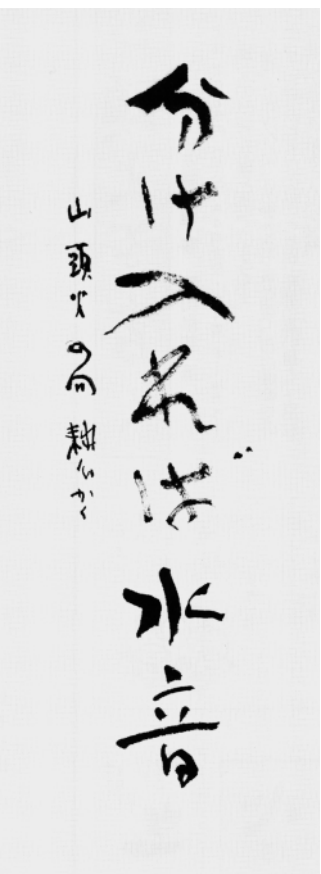 分け入れば水音
山頭火の句 耕心かく